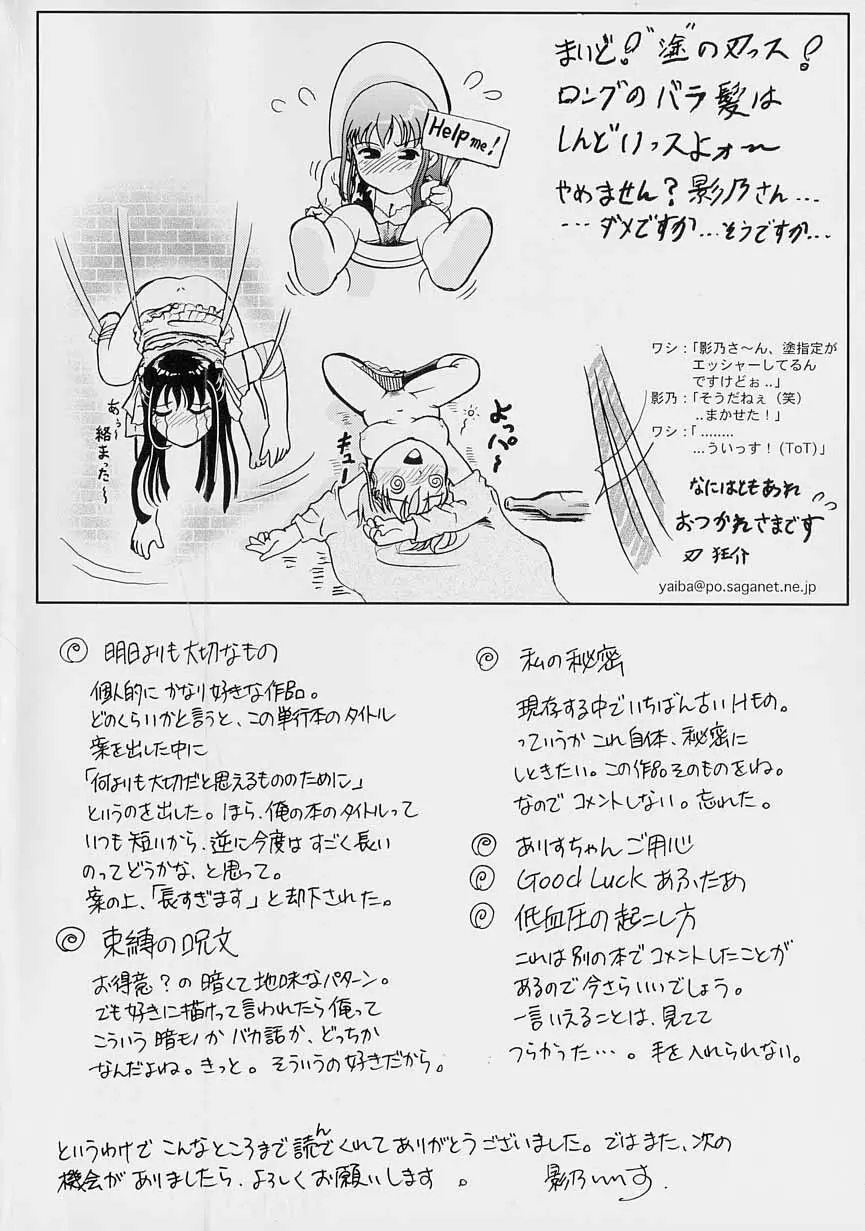 まいど!"塗"の刃っス!
ロングのバラ髪は
しんどいっスよォ〜
やめません?影乃さん……
…ダメですか…そうですか…
Help me!
あぅ〜
絡まった〜
よっパー
キュー
ワシ:「影乃さ〜ん、塗指定が
エッシャーしてるん
ですけどぉ..」
影乃:「そうだねぇ(笑)
..まかせた!」
ワシ:「........
...ういっす!(ToT)」
なにはともあれ
おつかれさまです
刃 狂介
yaiba@po.saganet.ne.jp
明日よりも大切なもの
個人的にかなり好きな作品。
どのくらいかと言うと、この単行本のタイトル
案を出した中に
「何よりも大切だと思えるもののために」
というのを出した。ほら、俺の本のタイトルって
いつも短いから、逆に今度はすごく長い
のってどうかな、と思って。
案の上、「長すぎます」と却下された。
束縛の呪文
お得意?の暗くて地味なパターン。
でも好きに描けって言われたら俺って
こういう暗モノかバカ話か、どっちか
なんだよね。きっと。そういうの好きだから。
私の秘密
現存する中でいちばん古いHもの。
っていうかこれ自体、秘密に
しときたい。この作品そのものをね。
なのでコメントしない。忘れた。
ありすちゃんご用心
Good Luck あふたあ
低血圧の起こし方
これは別の本でコメントしたことが
あるので今さらいいでしょう。
一言いえることは、見てて
つらかった…。手を入れられない。
というわけでこんなところまで読んでくれてありがとうございました。ではまた、次の
機会がありましたら、よろしくお願いします。 影乃いりす.